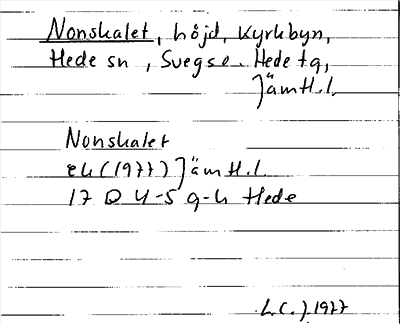 Nonskalet, höjd, Kyrkbyn,
Hede sn, Svegs Hede tg,
Jämtl.l.
Nonskalet
ek (1977) Jämtl.l.
17 D 4-5 g-h Hede
1977